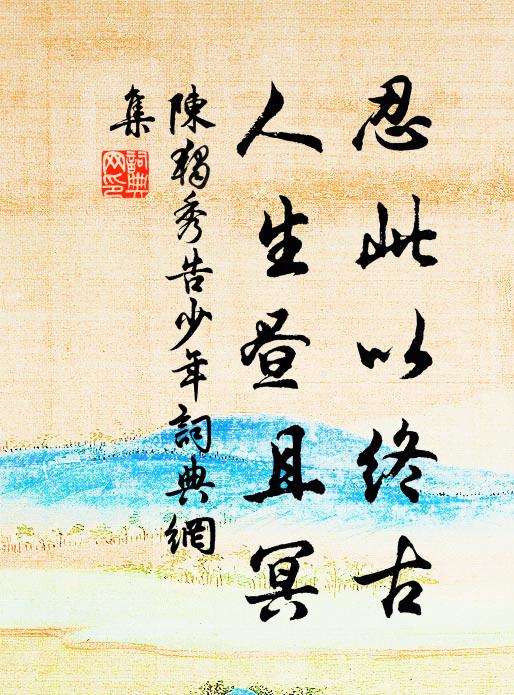 忍此以終古
人生昼且冥
陳獨秀告少年詞典網
集
詞典
网印